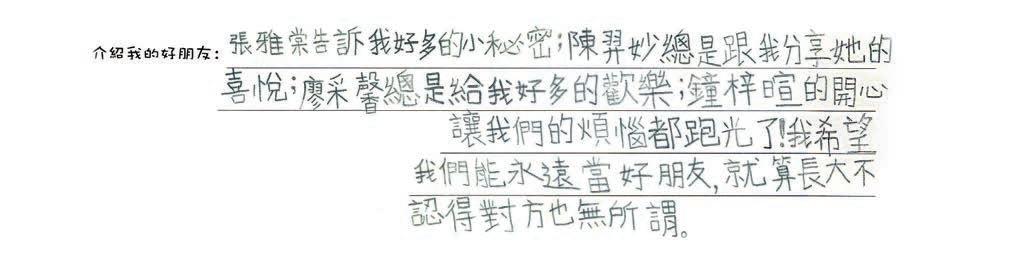 介紹我的好朋友：張雅棠告訴我好多的小秘密；陳羿妙總是跟我分享她的
喜悅；廖采馨總是給我好多的歡樂；鐘梓暄的開心
讓我們的煩惱都跑光了！我希望
我們能永遠當好朋友，就算長大不
認得對方也無所謂。